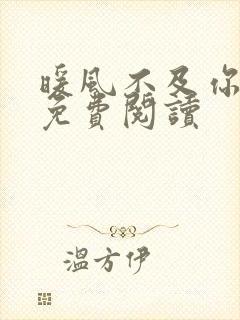 暖风不及你
免費閱讀
溫方伊